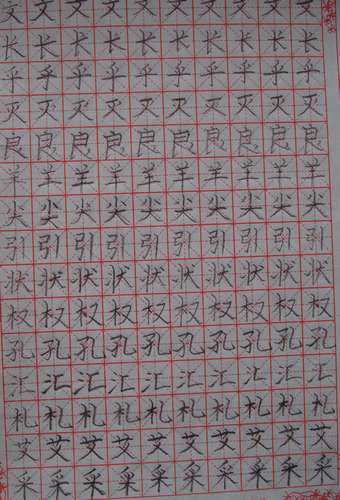 长长长长长长长长长长
乎乎乎乎乎乎乎乎乎乎
灭灭灭灭灭灭灭灭灭灭
良良良良良良良良良良
羊羊羊羊羊羊羊羊羊羊
尖尖尖尖尖尖尖尖尖尖
引引引引引引引引引引
状状状状状状状状状状
权权权权权权权权权权
孔孔孔孔孔孔孔孔孔孔
汇汇汇汇汇汇汇汇汇汇
札札札札札札札札札札
艾艾艾艾艾艾艾艾艾艾
采采采采采采采采采采